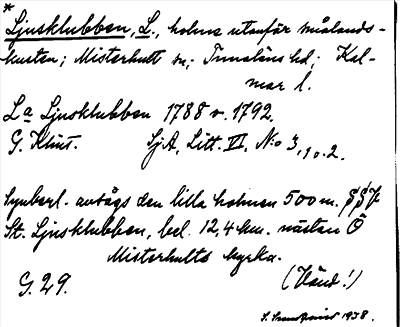 *
Ljusklubben, L., holme utanför smålands-
kusten; Misterhult sn; Tunaläns hd; Kal-
mar l.
La Ljusklubben 1788 o. 1792.
G. Klint. SjA, Litt. VI, No 3, 1 o. 2.
Synbarl. avsågs den lilla holmen 500 m.
St. Ljusklubben, bel. 12,4 km. nästan Ö
Misterhults kyrka.
G. 29. (Känd!)
1938.